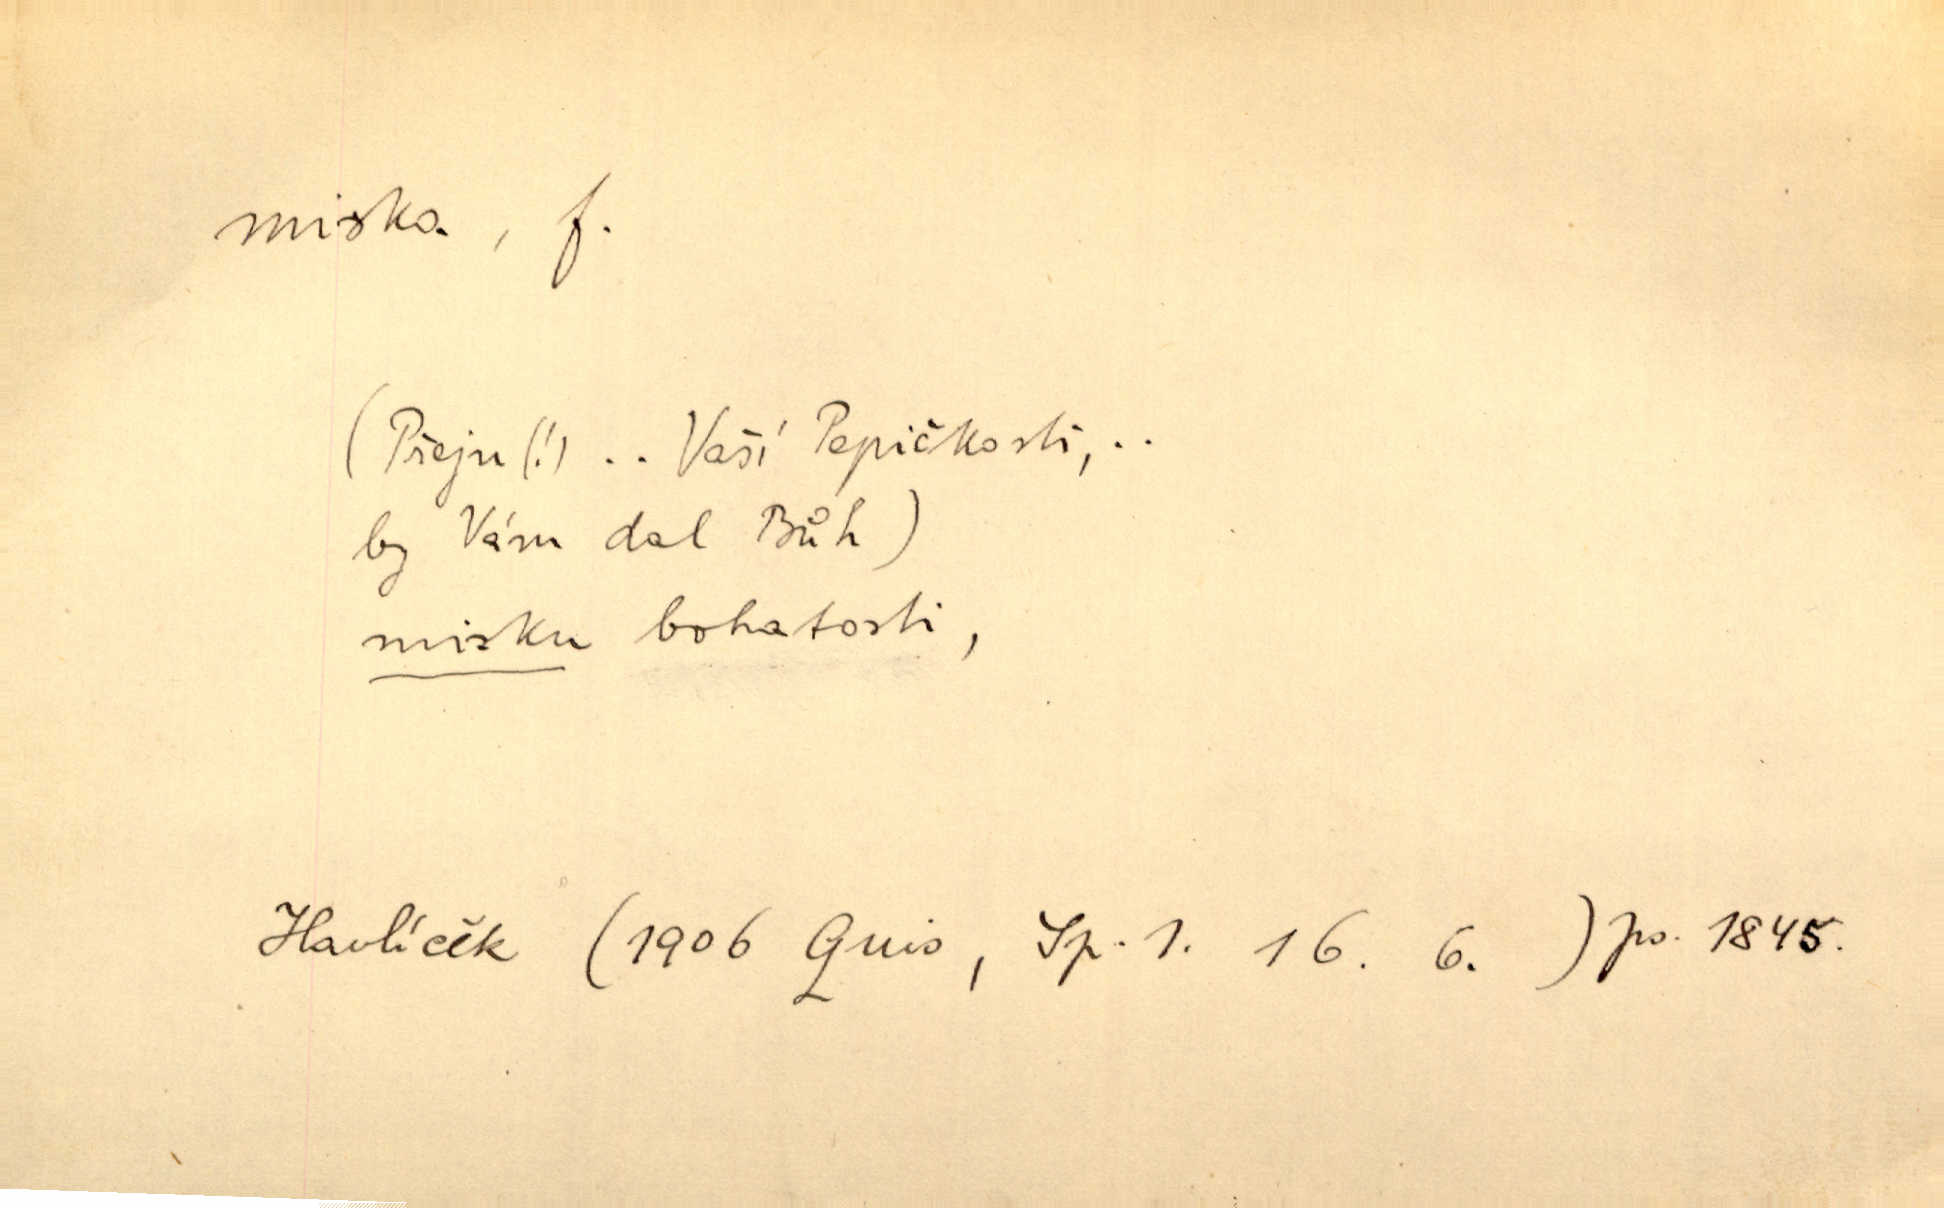 miska, f.
(Přeju (!) .. Vaší Pepičkosti, ..
by Vám dal Bůh)
misku bohatosti,
Havlíček (1906 Quis, Sp. 1. 16. 6. ) ps. 1845.